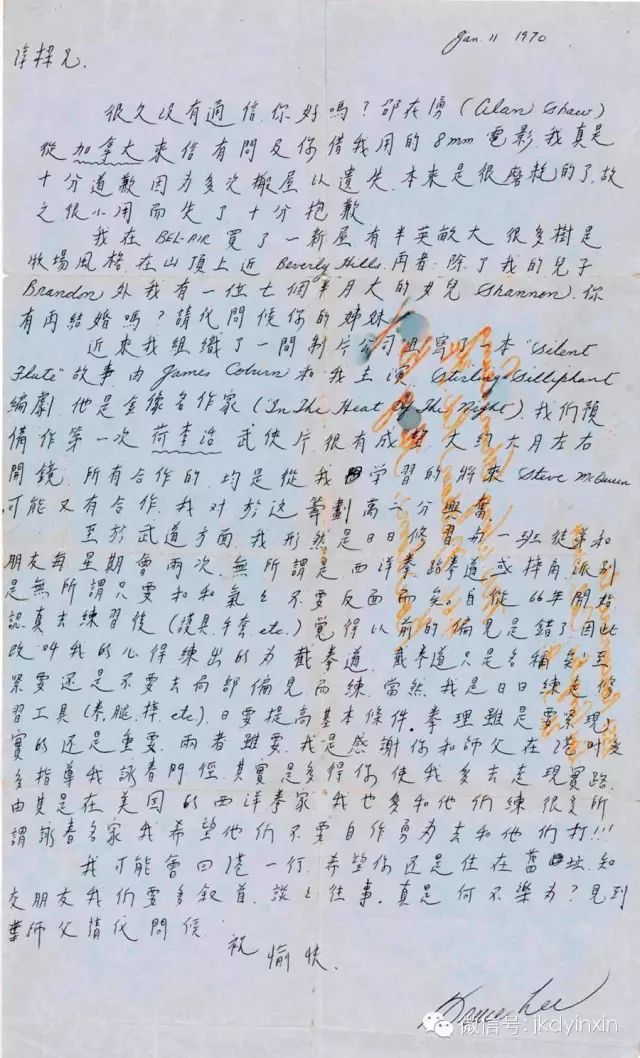 Jan. 11 1970
梁兄.
很久没有通信.你好嗎?邵在勇(Alan Shaw)
從加拿大來信有問及你借我用的8mm電影.我真是
十分道歉因为多次搬屋以遺失.本來是很磨乾的了.故
之很小用而失了.十分抱歉
我在BEL-AIR買了一新屋.有半英畝大.很多樹是
牧場風格.在山頂上近Beverly Hills.再者.除了我的兒子
Brandon外我有一位七個半月大的女兒Shannon.你
有再結婚嗎?請代問候你的姊妹
近來我組織了一間制片公司,寫了一本"Silent
Flute"故事.由James Coburn和我主演.Stirling Silliphant
編劇.他是金像名作家(In The Heat Of The Night).我們預
備作第一次荷李活武俠片.很有成.大約六月左右
開鏡.所有合作的.均是從我学習的.將來Steve McQueen
可能又有合作.我对於这籌劃萬二分興奮
至於武道方面.我形然是日日修習.冉一班徒弟和
朋友每星期會兩次.無所謂是西洋拳.跆拳道或摔角.派别
是無所謂.只要和和氣々不要反面而矣.自從66年開始
認真去練習後(護具.手套.etc.)覺得以前的偏見是錯了.因此
改叫我的心得練出的为截拳道.截拳道只是名稱矣.至
緊要还是不要去局部偏見而練.當然.我是日日練走.修
習工具(拳.腿.摔.etc).日要提高基本條件.拳理雖是要.現
實的还是重要.兩者雖要.我是感謝你和師父在港時多
多指導我詠春門徑.其實是多得你使我多去走現實路.
由其是在美国的西洋拳家.我也多和他们練.很多所
謂詠春名家.我希望他们不要自作勇为去和他们打!!!
我可能會回港一行.希望你还是住在舊址.知
交朋友我们要多叙首.談々往事.真是何不樂为?見到
葉師父請代問候.
祝
愉快.
Bruce Lee
微信号: jkdyinxin